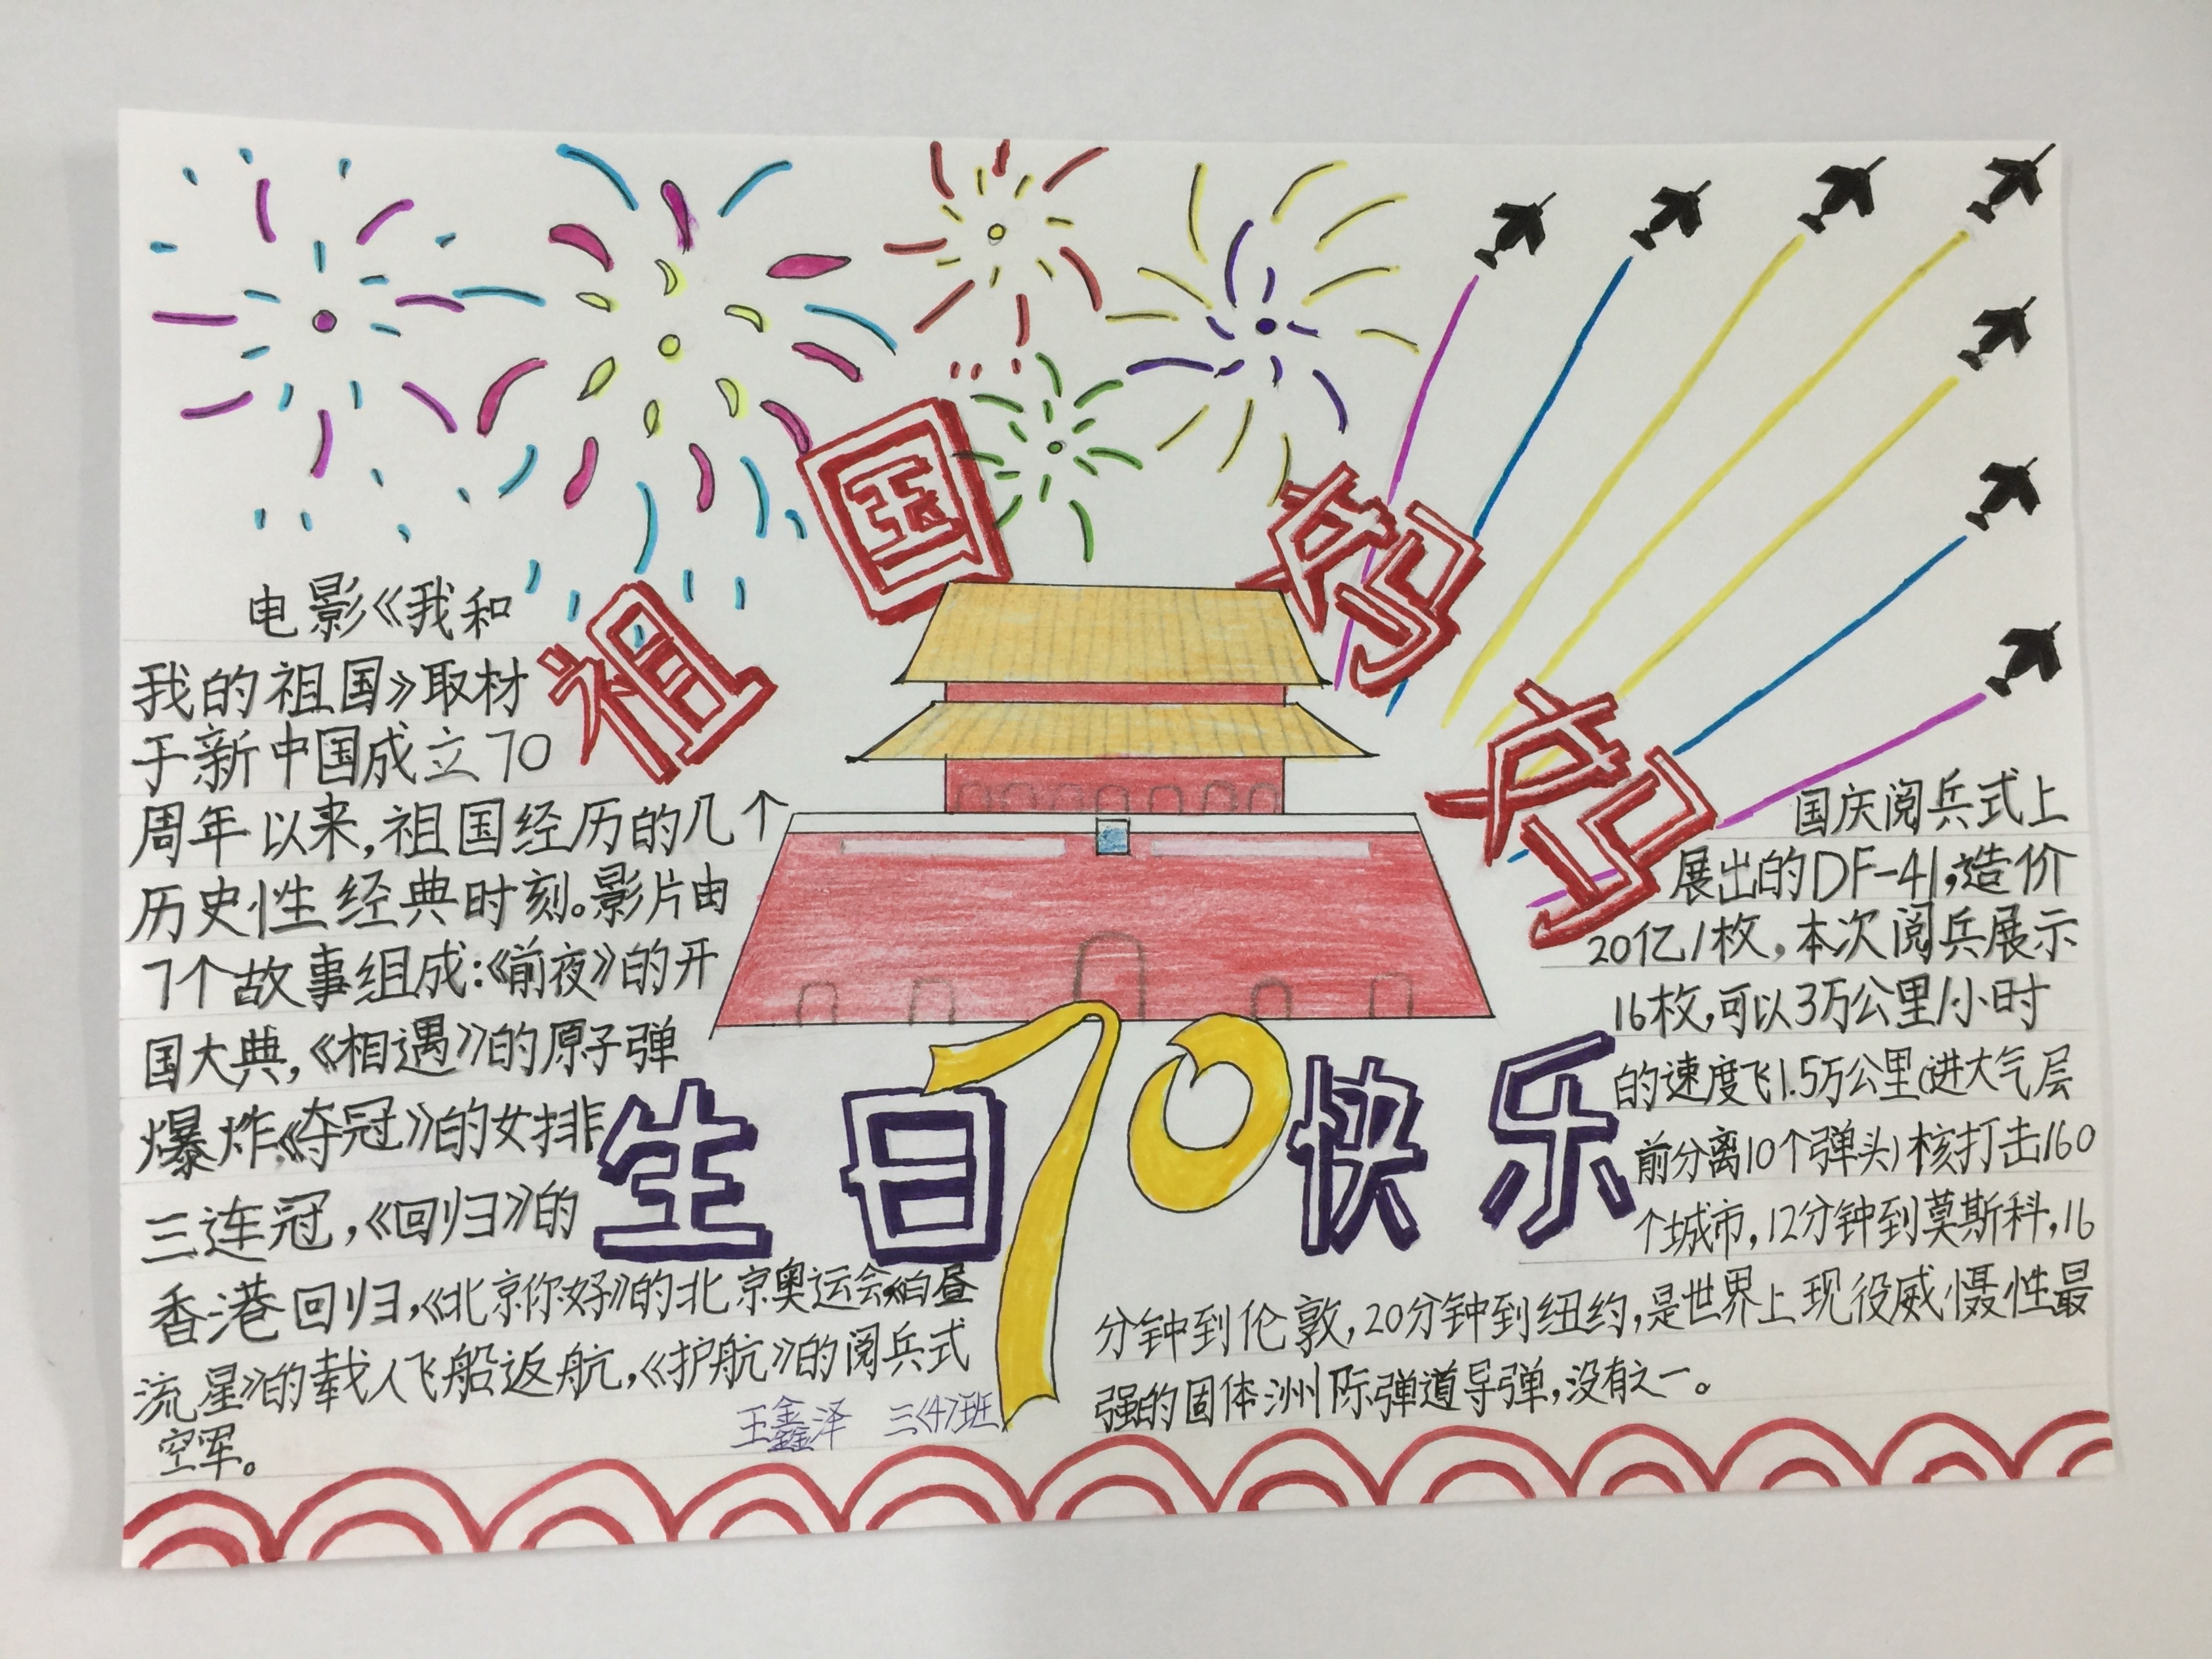 祖国妈妈
生日70快乐
电影《我和
我的祖国》取材
于新中国成立70
周年以来,祖国经历的几个
历史性经典时刻。影片由
7个故事组成:《前夜》的开
国大典,《相遇》的原子弹
爆炸,《夺冠》的女排
三连冠,《回归》的
香港回归,《北京你好》的北京奥运会,《白昼
流星》的载人飞船返航,《护航》的阅兵式
空军。
王鑫泽 三〈4〉班
国庆阅兵式上
展出的DF-41,造价
20亿/枚。本次阅兵展示
16枚,可以3万公里/小时
的速度飞1.5万公里(进大气层
前分离10个弹头)核打击160
个城市,12分钟到莫斯科,16
分钟到伦敦,20分钟到纽约,是世界上现役威慑性最
强的固体洲际弹道导弹,没有之一。